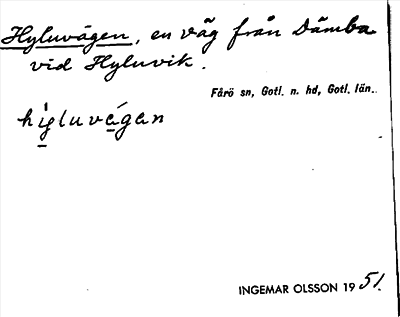 Hyluvägen, en väg från Dämba
vid Hyluvik.
Fårö sn, Gotl. n. hd, Gotl. län.
hi̱gluvá̱gan
INGEMAR OLSSON 1951.